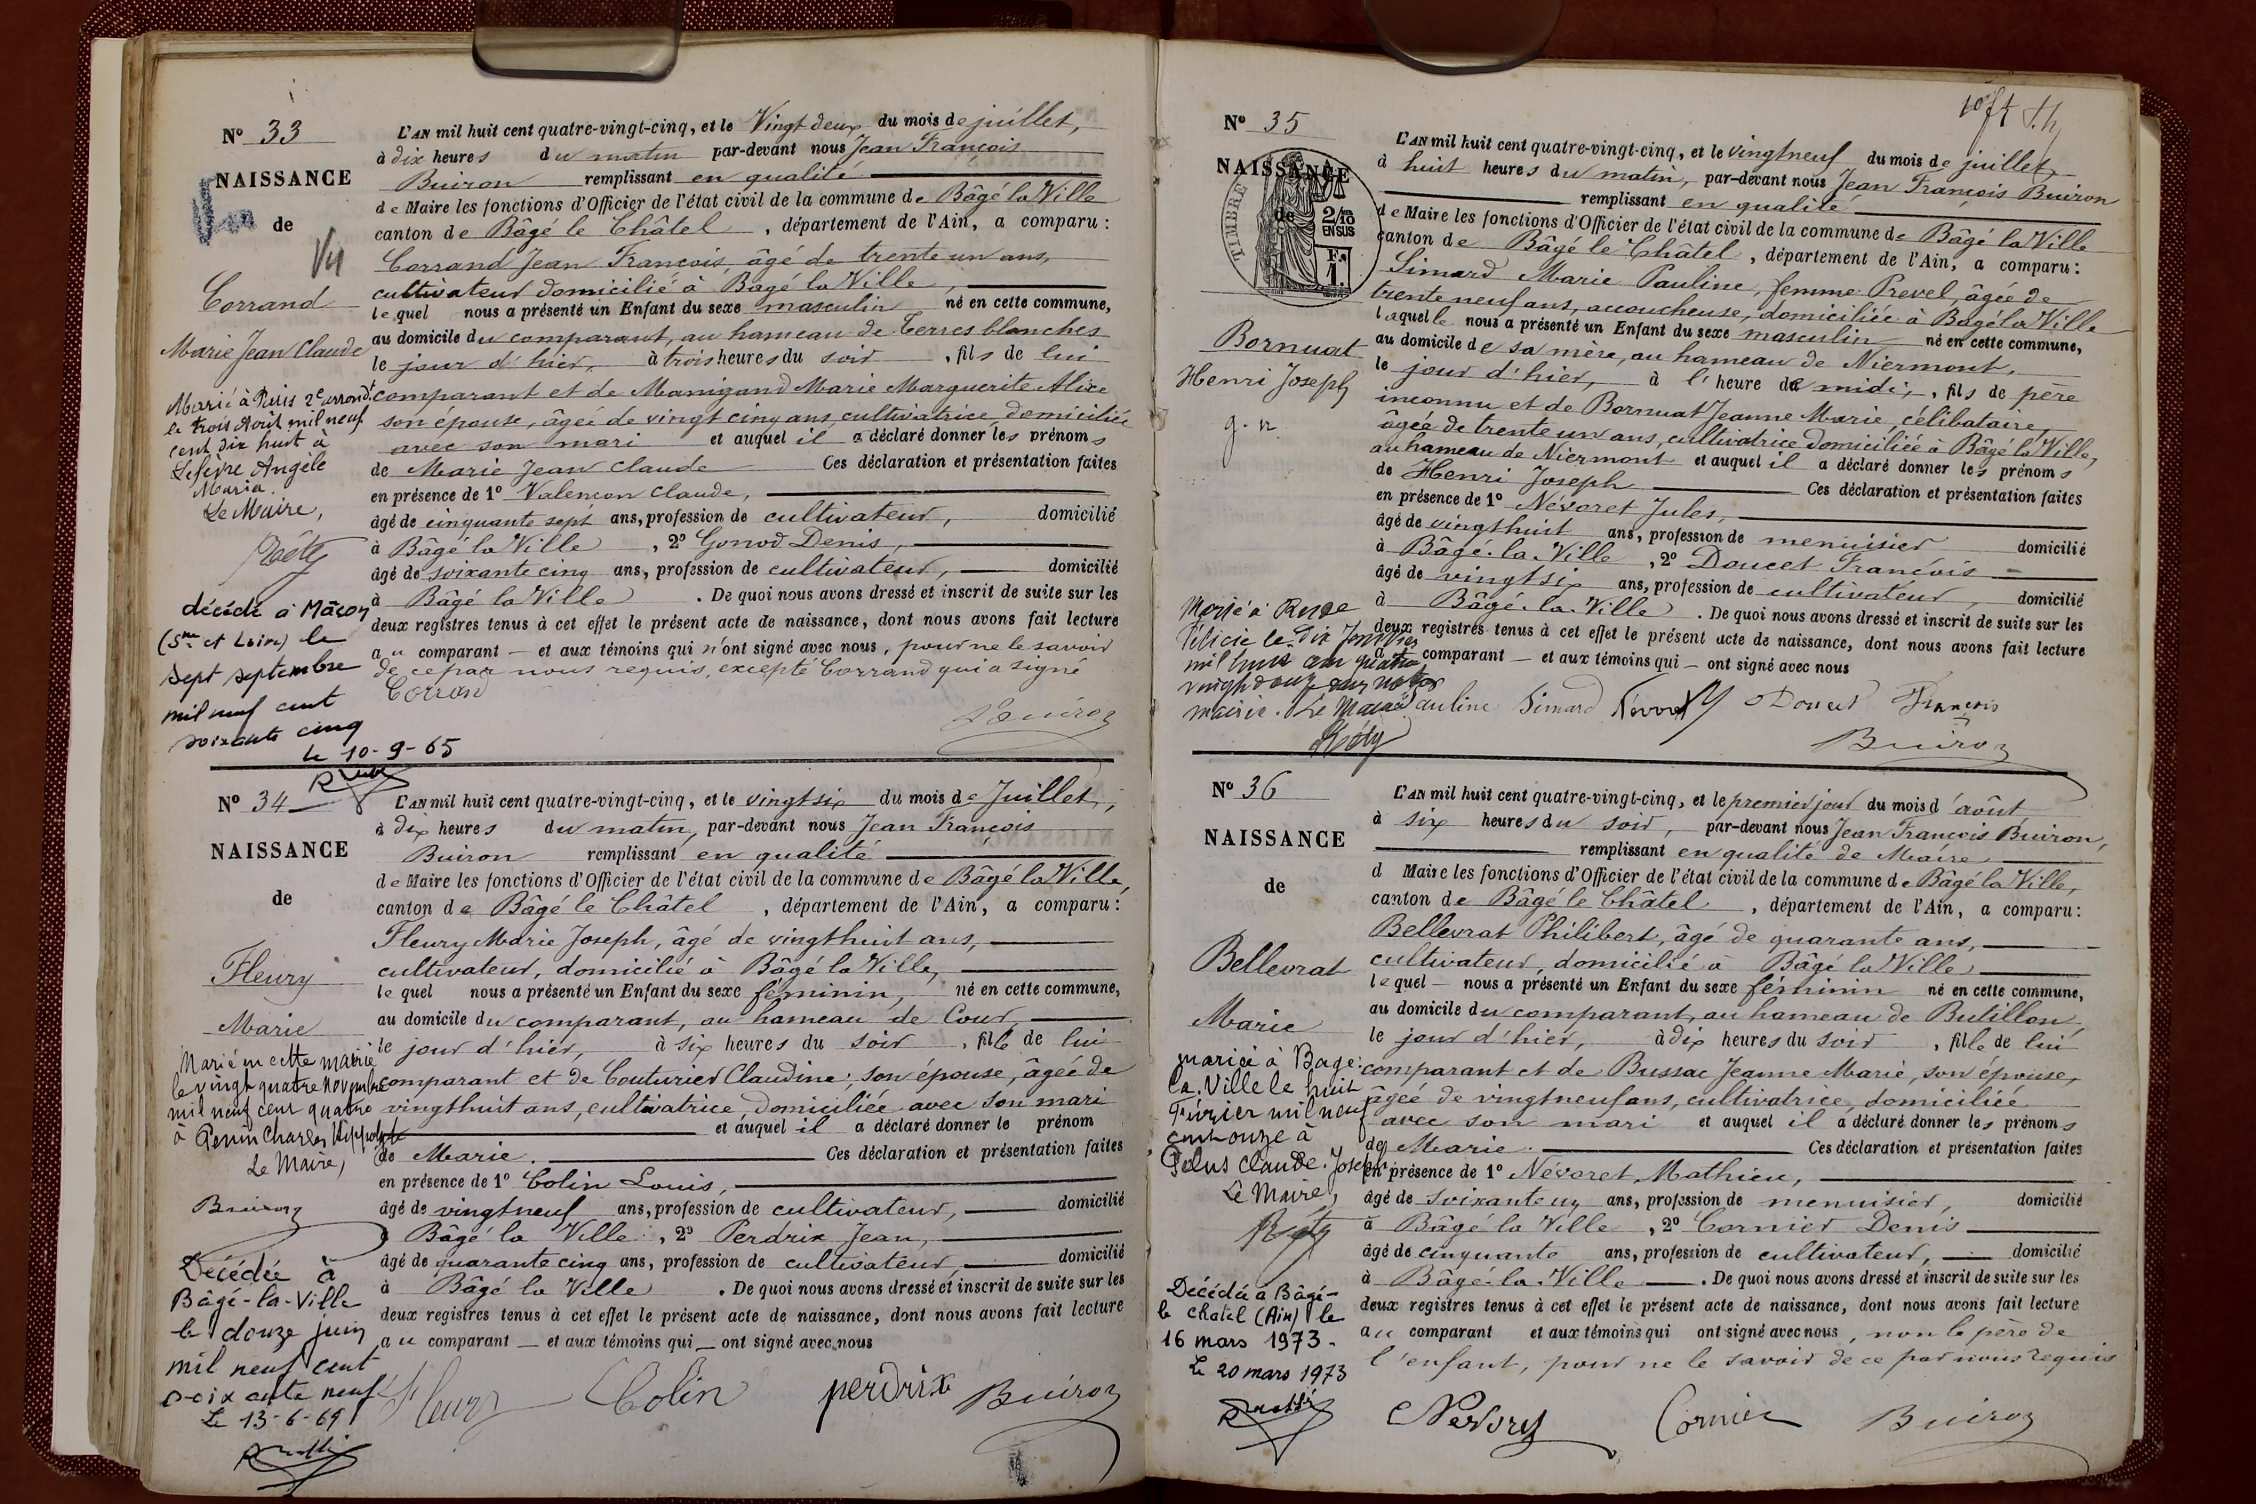 N° 33
NAISSANCE
de
Vu
Corrand
Marie Jean Claude
Marié à Paris 2e arrondt
le trois Août mil neuf
cent dix huit à
Lefèvre Angèle
Maria.
Le Maire,
Réty
décédé à Mâcon
(Sne et Loire) le
sept septembre
mil neuf cent
soixante cinq
le 10-9-65
L'AN mil huit cent quatre-vingt-cinq, et le Vingt deux du mois de juillet,
à dix heures du matin par-devant nous Jean François
Buiron remplissant en qualité
de Maire les fonctions d'Officier de l'état civil de la commune de Bâgé la Ville
canton de Bâgé le Châtel, département de l'Ain, a comparu :
Corrand Jean François, âgé de trente un ans,
cultivateur domicilié à Bâgé la Ville,
lequel nous a présenté un Enfant du sexe masculin né en cette commune,
au domicile du comparant, au hameau de Terres blanches
le jour d'hier, à trois heures du soir, fils de lui
comparant et de Manigand Marie Marguerite Alice
son épouse, âgée de vingt cinq ans, cultivatrice, domiciliée
avec son mari et auquel il a déclaré donner les prénoms
de Marie Jean Claude Ces déclaration et présentation faites
en présence de 1° Valençon Claude,
âgé de cinquante sept ans, profession de cultivateur, domicilié
à Bâgé la Ville, 2° Gonod Denis,
âgé de soixante cinq ans, profession de cultivateur, domicilié
à Bâgé la Ville. De quoi nous avons dressé et inscrit de suite sur les
deux registres tenus à cet effet le présent acte de naissance, dont nous avons fait lecture
au comparant — et aux témoins qui n'ont signé avec nous, pour ne le savoir
de ce par nous requis, excepté Corrand qui a signé
Corrand
Buiron
N° 34
NAISSANCE
de
Fleury
Marie
Marié en cette mairie
le vingt quatre novembre
mil neuf cent quatre
à Perrin Charles Hippolyte
Le Maire,
Buiron
Décédée à
Bâgé-la-Ville
le douze juin
mil neuf cent
soixante neuf
Le 13-6-69
L'AN mil huit cent quatre-vingt-cinq, et le vingt six du mois de Juillet,
à dix heures du matin, par-devant nous Jean François
Buiron remplissant en qualité
de Maire les fonctions d'Officier de l'état civil de la commune de Bâgé la Ville,
canton de Bâgé le Châtel, département de l'Ain, a comparu :
Fleury Marie Joseph, âgé de vingt huit ans,
cultivateur, domicilié à Bâgé la Ville,
lequel nous a présenté un Enfant du sexe féminin, né en cette commune,
au domicile du comparant, au hameau de Cour,
le jour d'hier, à six heures du soir, fille de lui
comparant et de Couturier Claudine, son épouse, âgée de
vingt huit ans, cultivatrice, domiciliée avec son mari
et auquel il a déclaré donner le prénom
de Marie. Ces déclaration et présentation faites
en présence de 1° Colin Louis,
âgé de vingt neuf ans, profession de cultivateur, domicilié
à Bâgé la Ville, 2° Perdrix Jean,
âgé de quarante cinq ans, profession de cultivateur, domicilié
à Bâgé la Ville. De quoi nous avons dressé et inscrit de suite sur les
deux registres tenus à cet effet le présent acte de naissance, dont nous avons fait lecture
au comparant — et aux témoins qui — ont signé avec nous
Fleury Colin perdrix Buiron
N° 35
NAISSANCE
de
TIMBRE
2/10 EN SUS
1 F.
Bornuat
Henri Joseph
g. n.
Marié à
Félicie le dix Janvier
mil huit cent quatre
vingt douze en notre
mairie. Le Maire
Réty
L'AN mil huit cent quatre-vingt-cinq, et le vingt neuf du mois de juillet,
à huit heures du matin, par-devant nous Jean François Buiron
remplissant en qualité
de Maire les fonctions d'Officier de l'état civil de la commune de Bâgé la Ville
canton de Bâgé le Châtel, département de l'Ain, a comparu :
Simard Marie Pauline, femme Prevel, âgée de
trente neuf ans, accoucheuse, domiciliée à Bâgé la Ville
laquelle nous a présenté un Enfant du sexe masculin né en cette commune,
au domicile de sa mère, au hameau de Niermont,
le jour d'hier, à l'heure de midi, fils de père
inconnu et de Bornuat Jeanne Marie, célibataire,
âgée de trente un ans, cultivatrice domiciliée à Bâgé la Ville,
au hameau de Niermont et auquel il a déclaré donner les prénoms
de Henri Joseph Ces déclaration et présentation faites
en présence de 1° Névoret Jules,
âgé de vingt huit ans, profession de menuisier domicilié
à Bâgé-la-Ville, 2° Doucet François
âgé de vingt six ans, profession de cultivateur, domicilié
à Bâgé-la-Ville. De quoi nous avons dressé et inscrit de suite sur les
deux registres tenus à cet effet le présent acte de naissance, dont nous avons fait lecture
a comparant — et aux témoins qui — ont signé avec nous
Pauline Simard Névoret Doucet François
Buiron
N° 36
NAISSANCE
de
Bellevrat
Marie
mariée à Bagé-
la-Ville le huit
Février mil neuf
cent onze à
Pelus Claude-Joseph.
Le Maire,
Réty
Décédée à Bâgé-
le chatel (Ain) le
16 mars 1973.
Le 20 mars 1973
L'AN mil huit cent quatre-vingt-cinq, et le premier jour du mois d'août
à six heures du soir, par-devant nous Jean François Buiron,
remplissant en qualité de Maire
d Maire les fonctions d'Officier de l'état civil de la commune de Bâgé la Ville,
canton de Bâgé le Châtel, département de l'Ain, a comparu :
Bellevrat Philibert, âgé de quarante ans,
cultivateur, domicilié à Bâgé la Ville
lequel — nous a présenté un Enfant du sexe féminin né en cette commune,
au domicile du comparant, au hameau de Butillon,
le jour d'hier, à dix heures du soir, fille de lui
comparant et de Bussac Jeanne Marie, son épouse,
âgée de vingt neuf ans, cultivatrice, domiciliée
avec son mari et auquel il a déclaré donner les prénoms
de Marie. Ces déclaration et présentation faites
en présence de 1° Névoret Mathieu,
âgé de soixante un ans, profession de menuisier, domicilié
à Bâgé la Ville, 2° Cornier Denis
âgé de cinquante ans, profession de cultivateur, domicilié
à Bâgé-la-Ville. De quoi nous avons dressé et inscrit de suite sur les
deux registres tenus à cet effet le présent acte de naissance, dont nous avons fait lecture
au comparant et aux témoins qui ont signé avec nous, non le père de
l'enfant, pour ne le savoir de ce par nous requis
Cornier Buiron